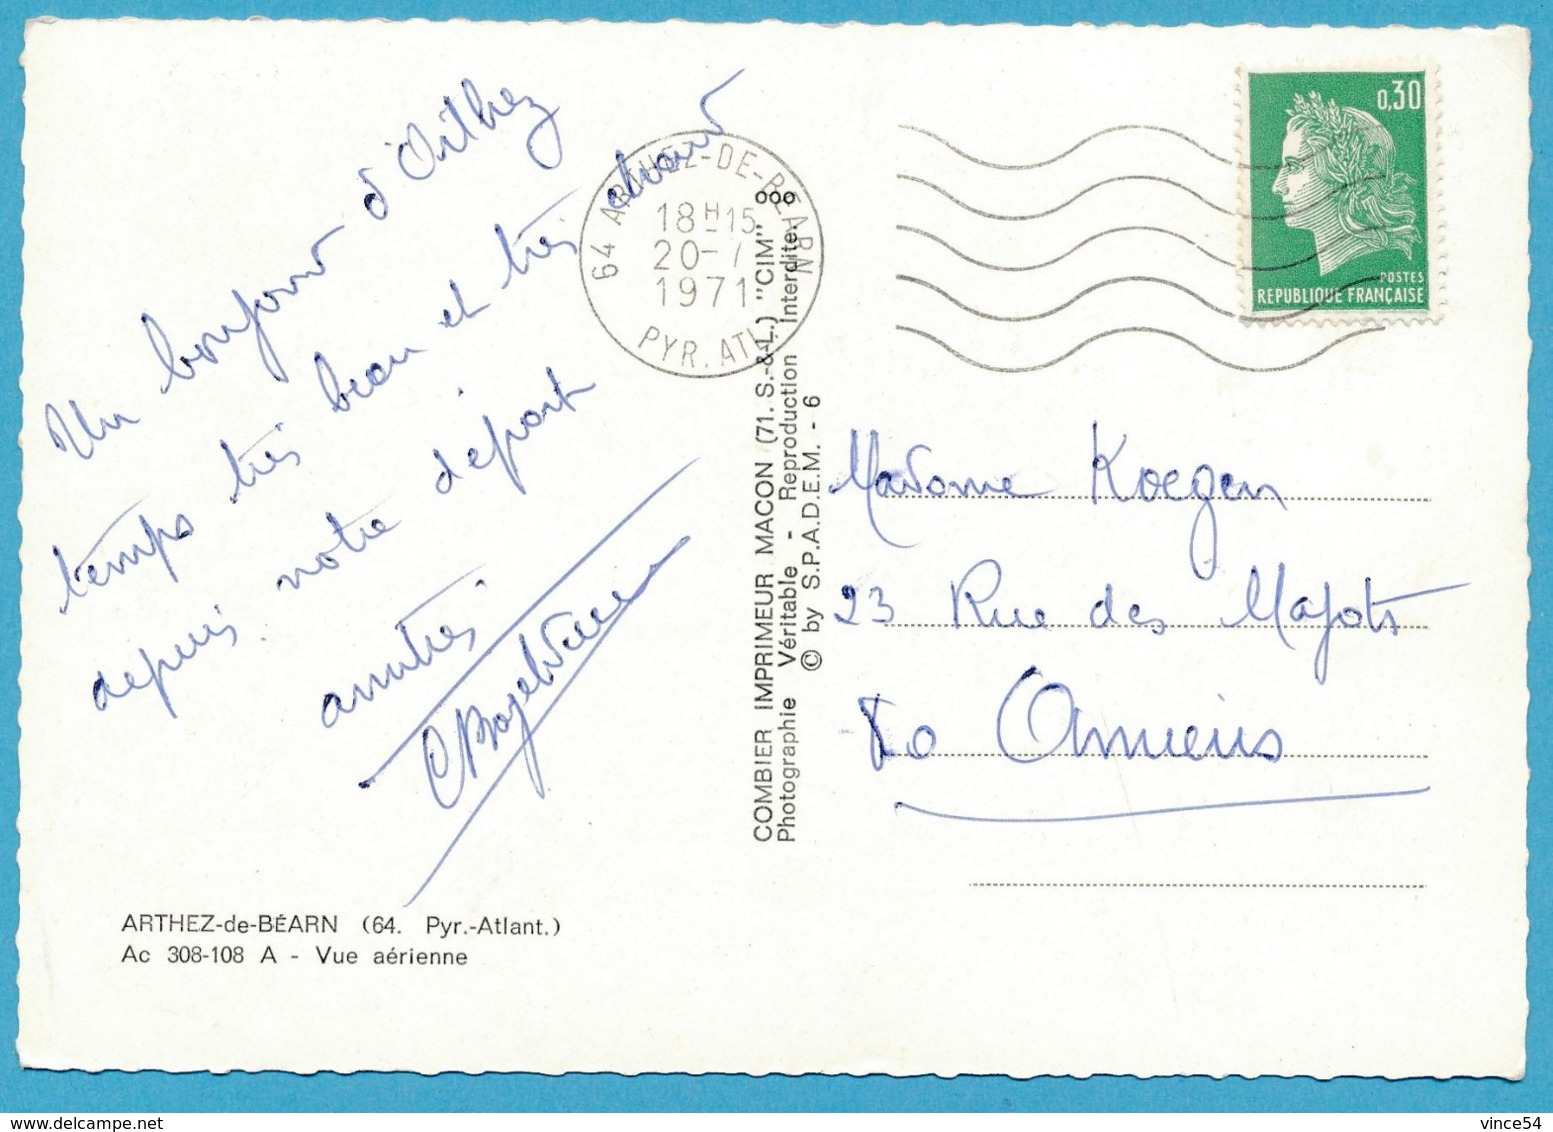 Un bonjour d'Arthez
temps très beau et très chaud
depuis notre départ
amitiés
ARTHEZ-de-BÉARN (64. Pyr.-Atlant.)
Ac 308-108 A - Vue aérienne
64 ARTHEZ-DE-BÉARN
18H15
20-7
1971
PYR. ATL.
COMBIER IMPRIMEUR MACON (71. S.-&-L.) "CIM"
Photographie Véritable - Reproduction Interdite.
© by S.P.A.D.E.M. - 6
0,30
POSTES
REPUBLIQUE FRANÇAISE
Madame Koegen
23 Rue des Majots
80 Amiens
vince54